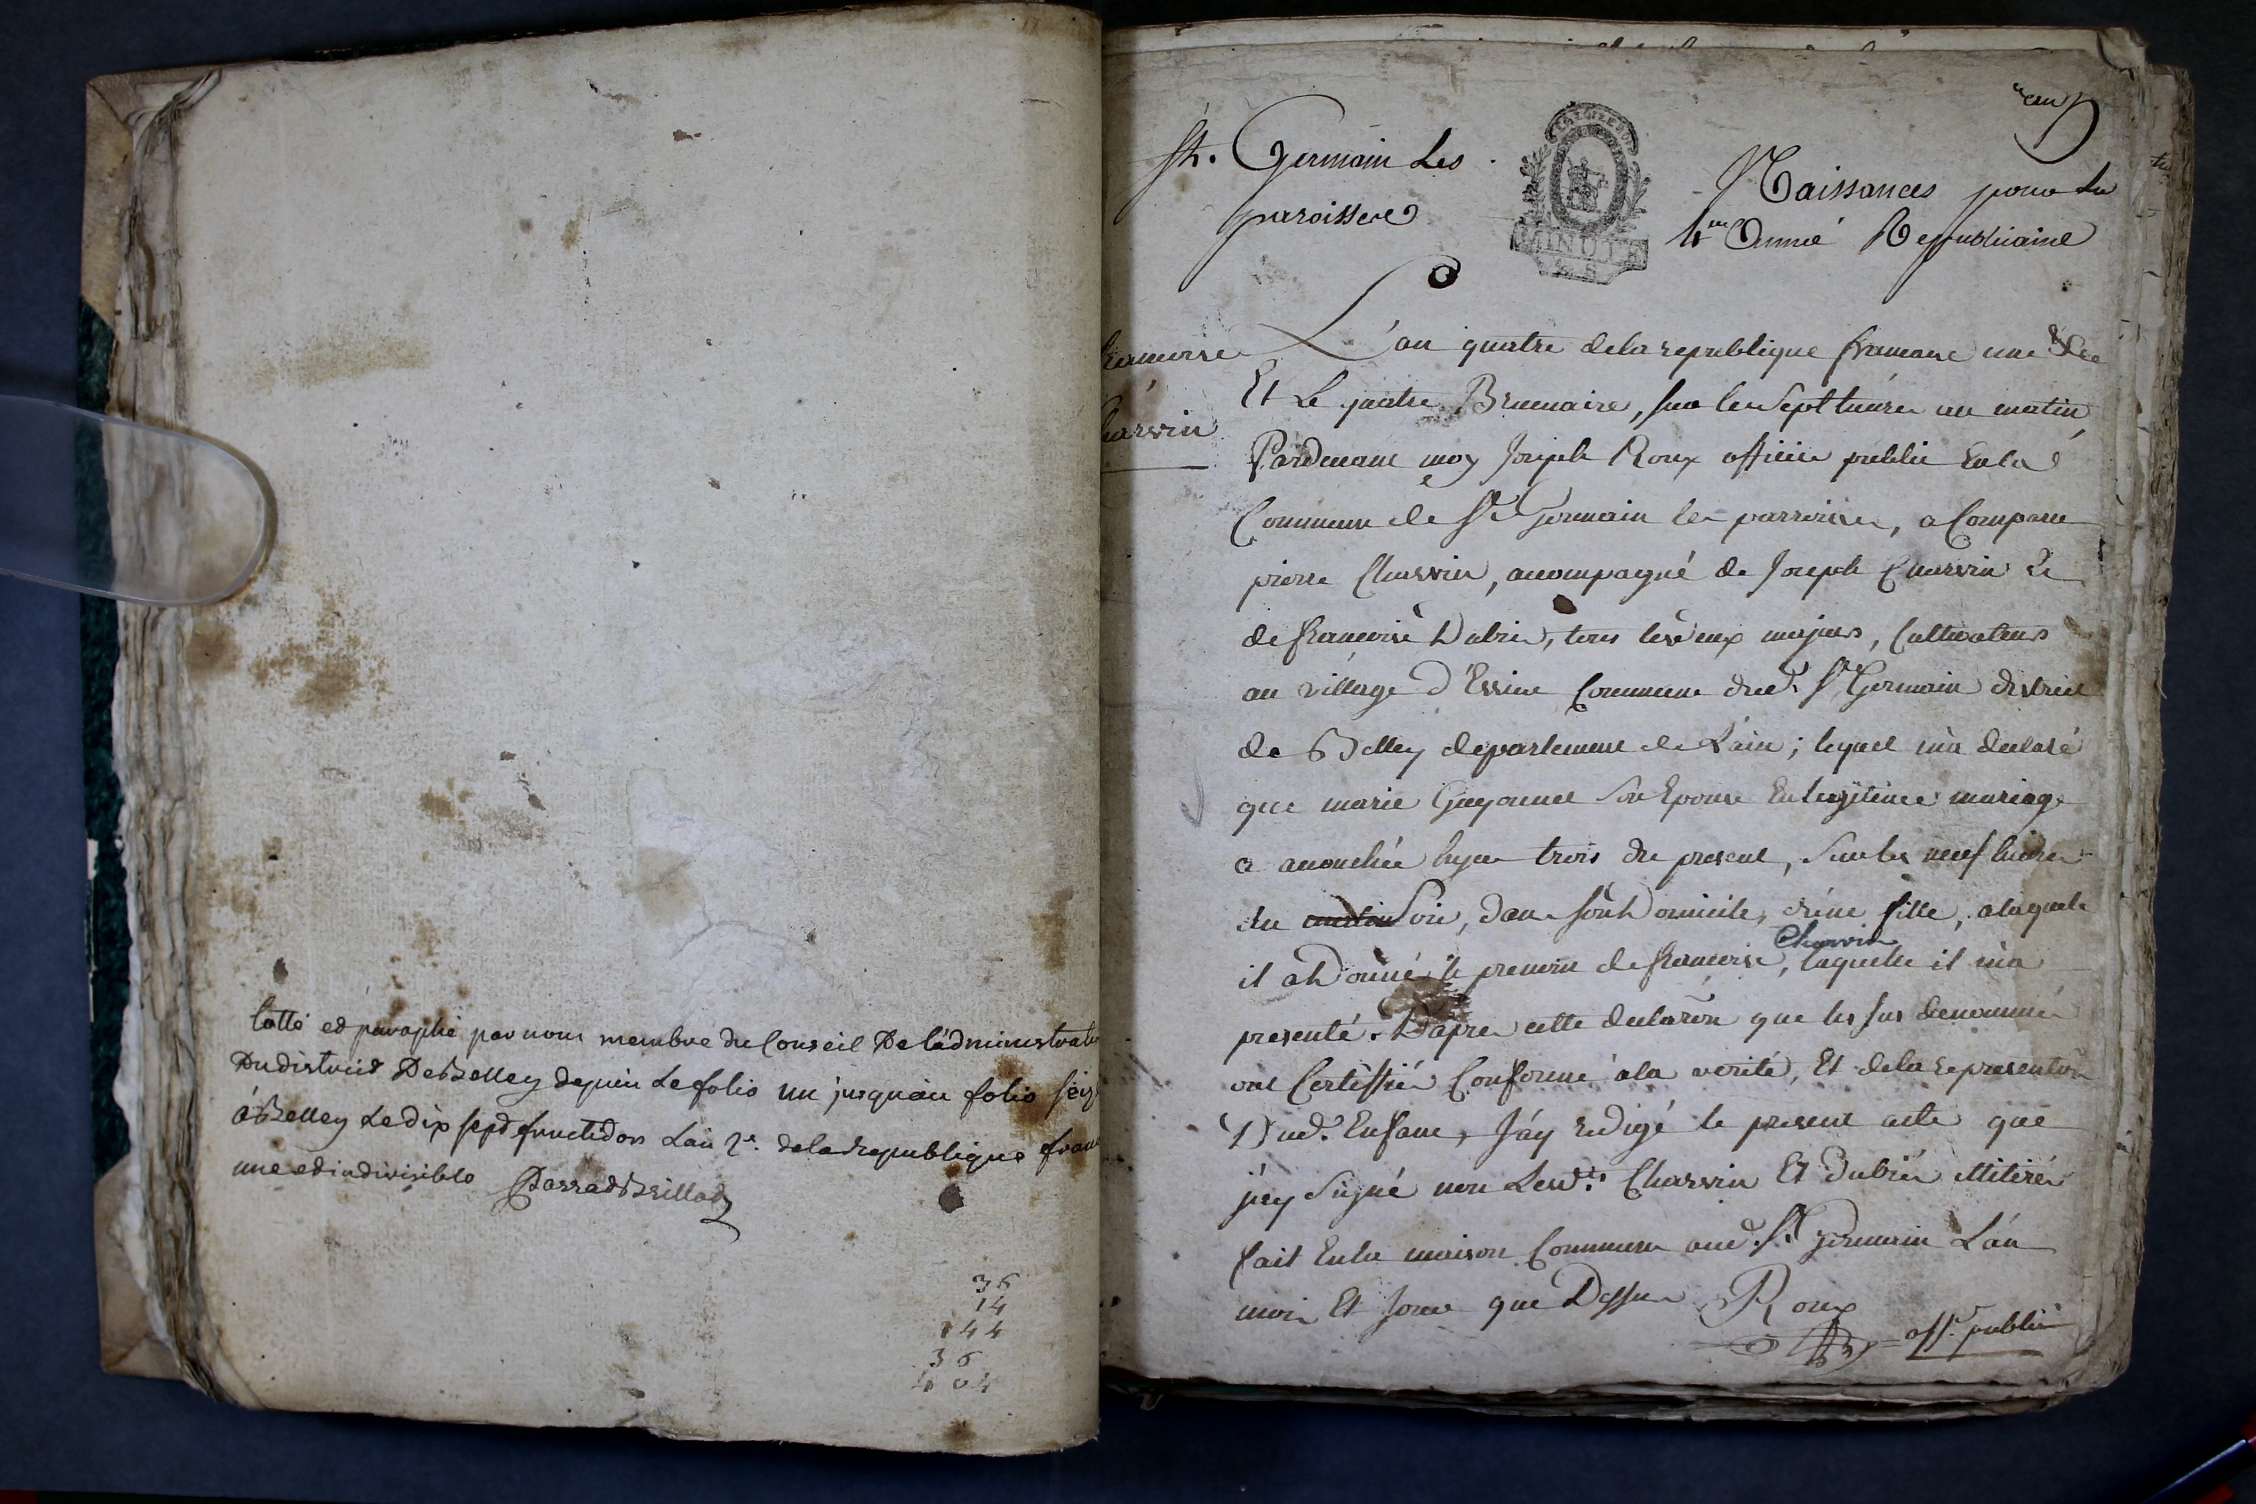 Cotté et paraphé par nous membre du Conseil De l'administrat
Du district De Belley depuis Le folio un jusquau folio seiz
á Belley Le dix sept fructidor Lan 2e. de la republique fran
une et indivisible Parrad Brillat
36
14
144
36
404
St. Germain Les
paroisses
MINUTE
Naissances pour La
4me. Année Republicaine
francoise
Charvin
L'an quatre dela republique francaise une &
Et Le quatre Brumaire, sur les sept heures au matin
Pardevant moy Joseph Roux officier public En la
Commune de St. Germain les parroisses, a Comparu
pierre Charvin, acompagné de Joseph Charvin Et
de francoise Dubien, tous les deux majeurs, Cultivateurs
au village d'Essieu Commune dud. St. Germain district
de Belley departement de L'ain; lequel m'a declaré
que marie Guyonnet Son Epouse En legitime mariage
a accouchée hyer trois du present, Sur les neuf heures
du matin Soir, dans son Domicile, d'une fille, alaquelle
il a Donné le prenom de francoise Charvin, laquelle il m'a
presenté. D'apres cette declaron. que les sus denommés
ont Certiffié Conforme ala verité, Et dela representon.
Dud. Enfant, J'ay redigé le present acte que
j'ay Signé non Lesdts. Charvin Et Dubien illitérés
fait En la maison Commune aud. St. Germain L'an
mois Et Jour que Dessus Roux
offr. public